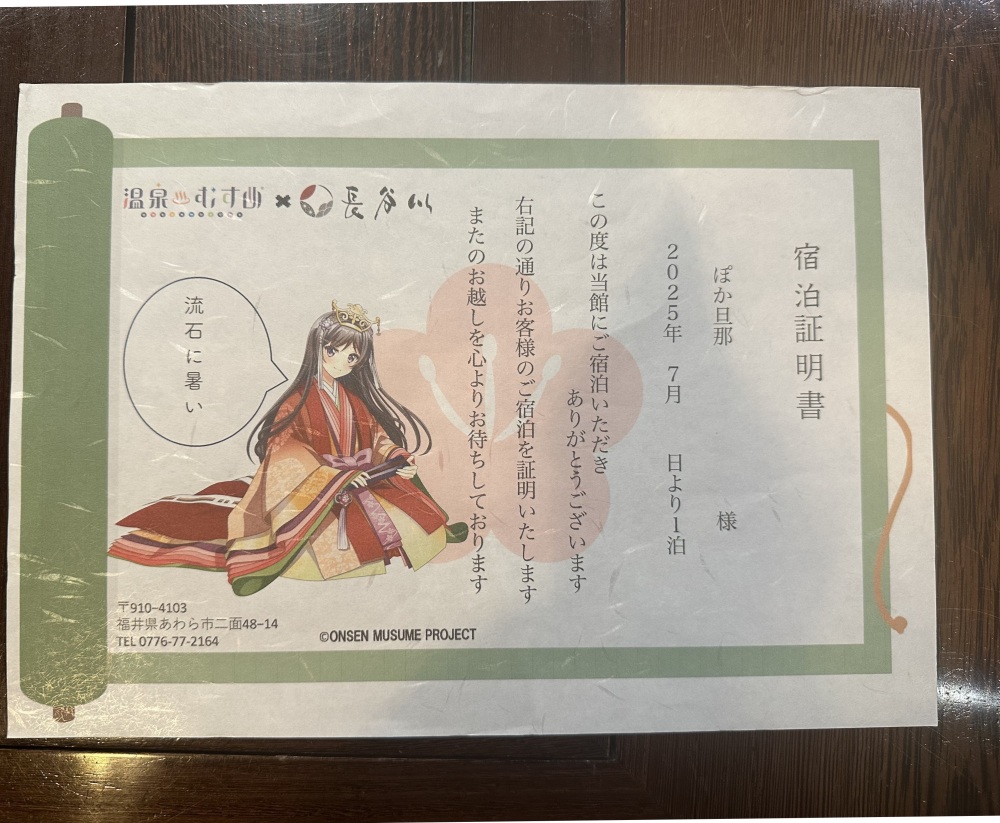 宿泊証明書
ぽか旦那　様
2025年　7月　日より1泊
この度は当館にご宿泊いただき
ありがとうございます
右記の通りお客様のご宿泊を証明いたします
またのお越しを心よりお待ちしております
温泉むすめ×長谷川
流石に暑い
〒910-4103
福井県あわら市二面48-14
TEL 0776-77-2164
©ONSEN MUSUME PROJECT